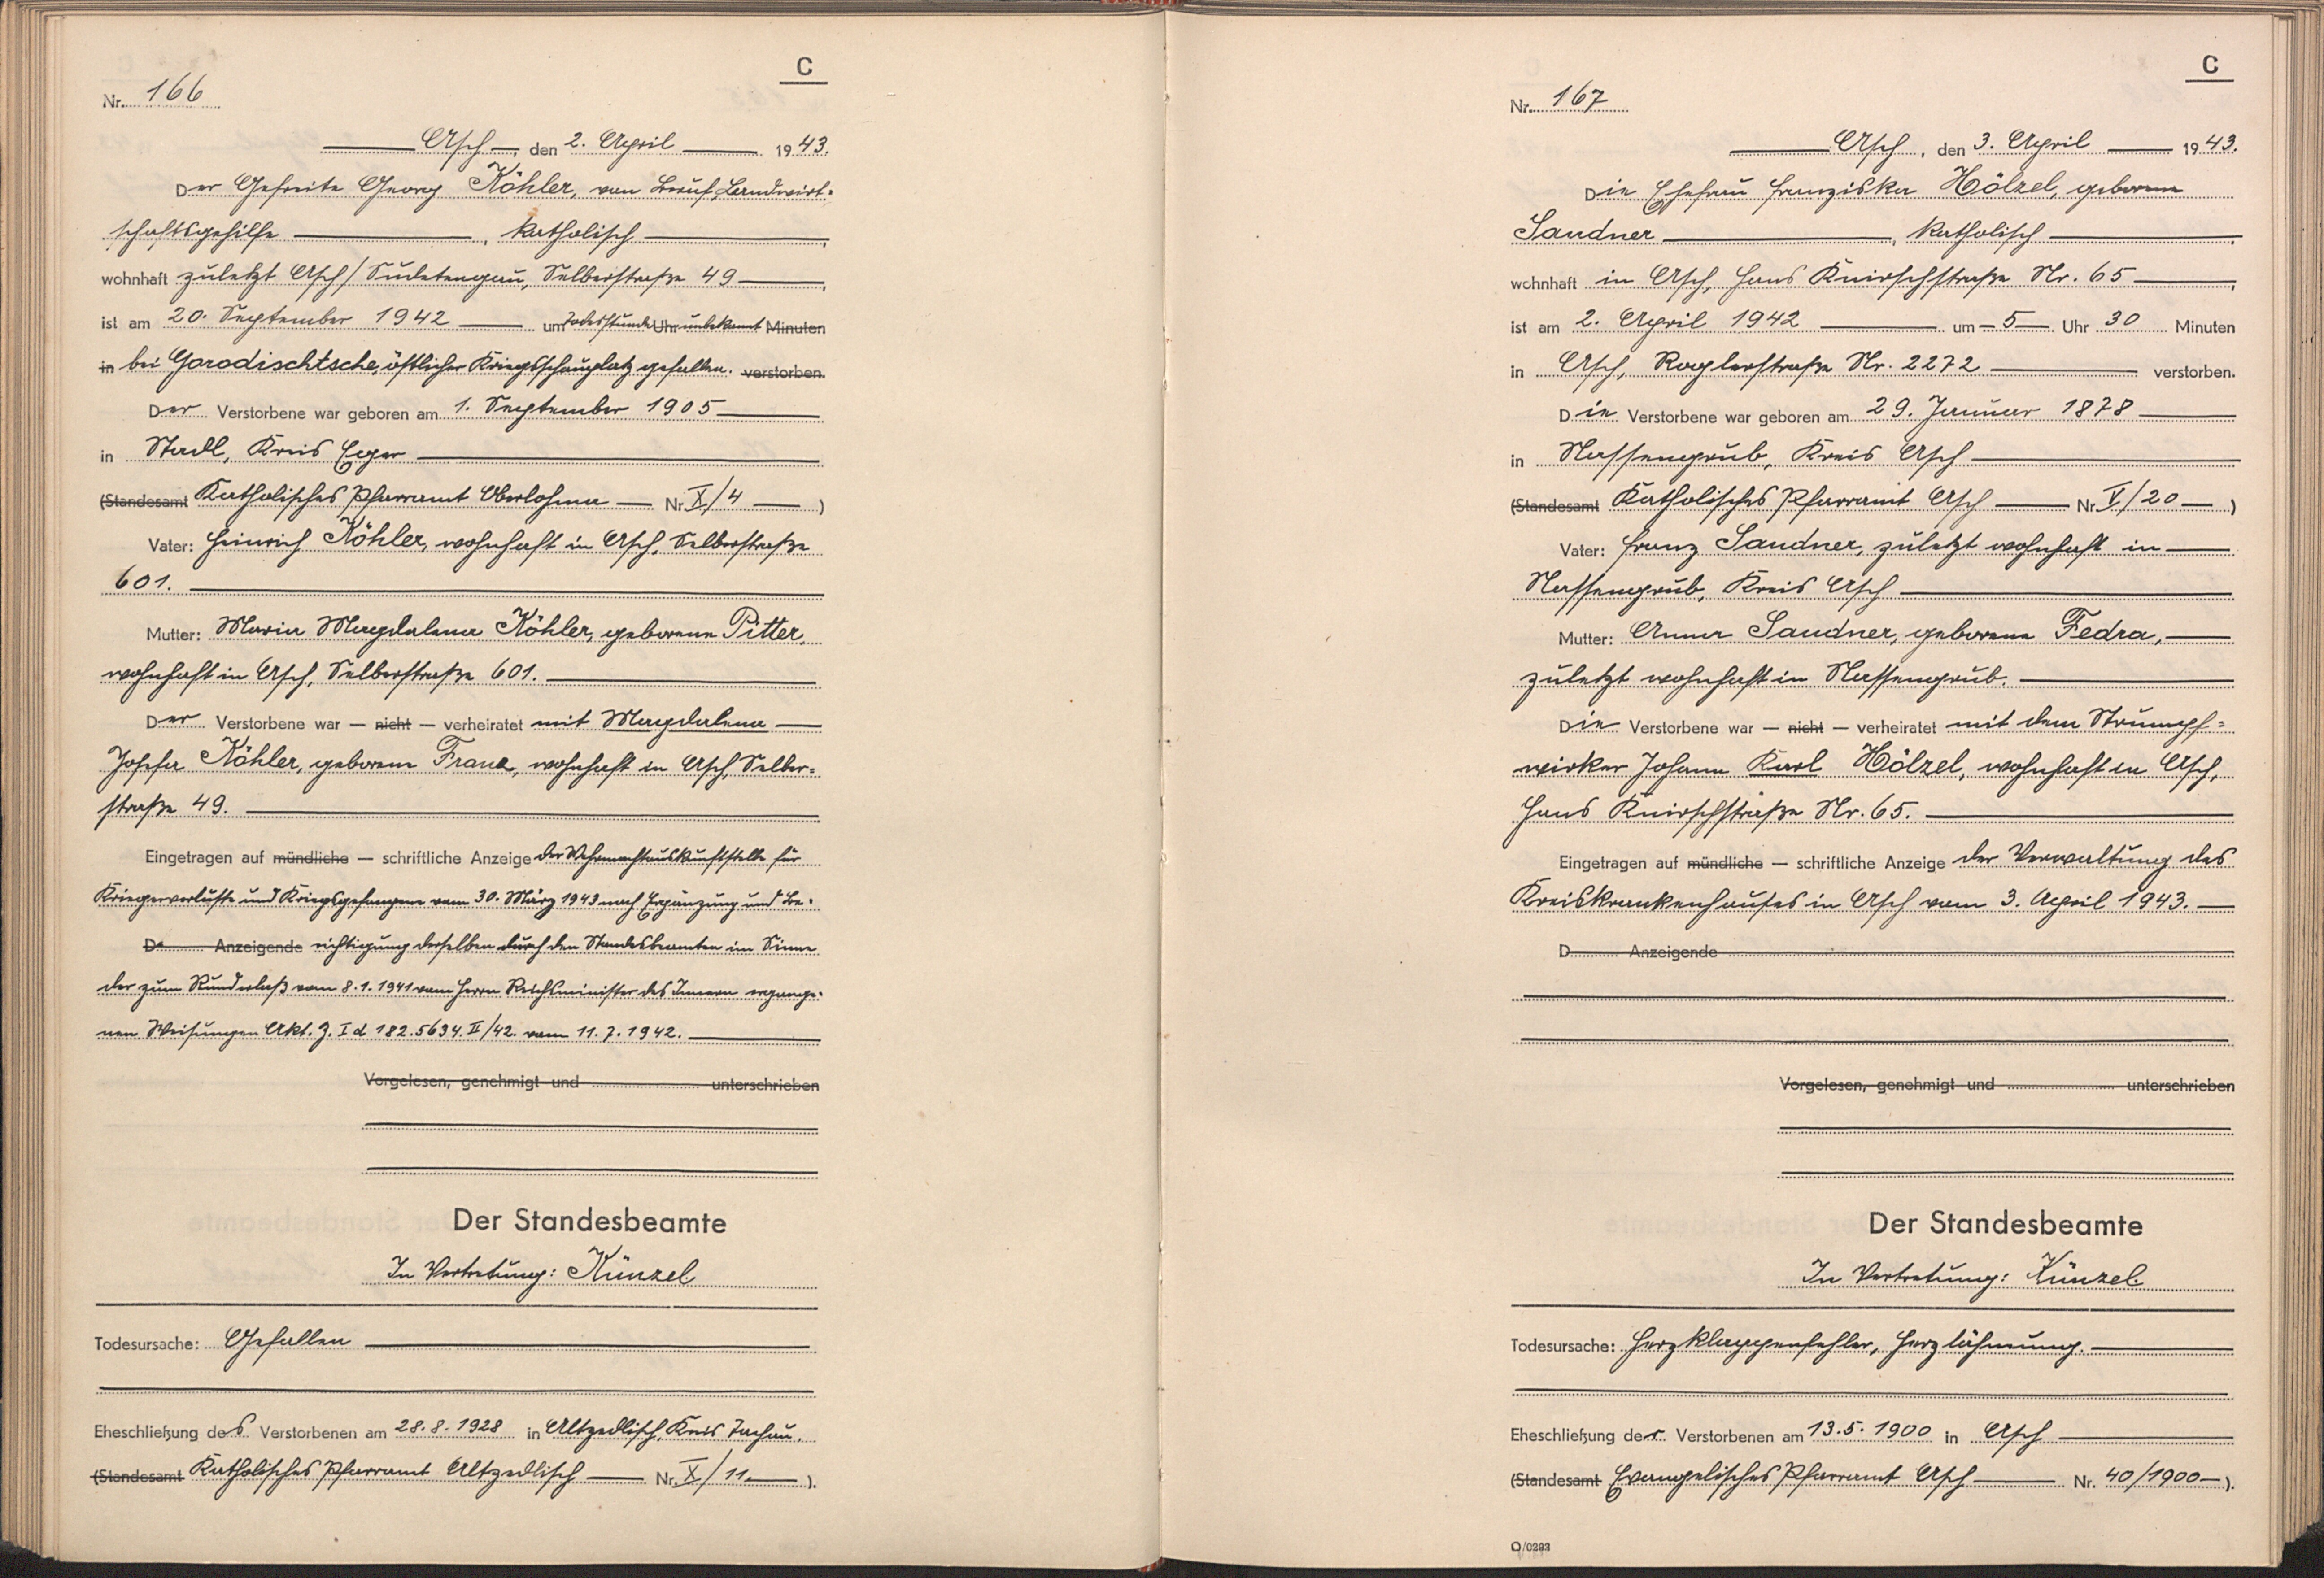 C
Nr. 166
Asch, den 2. April 1943.
Der Gefreite Georg Köhler, von Beruf Landwirt-
schaftsgehilfe, katholisch,
wohnhaft zuletzt Asch/Sudetengau, Selberstraße 49,
ist am 20. September 1942 um Todesstunde Uhr unbekannt Minuten
in bei Gorodischtsche, östlicher Kriegsschauplatz gefallen. verstorben.
Der Verstorbene war geboren am 1. September 1905
in Stadl, Kreis Eger
(Standesamt Katholisches Pfarramt Oberlohma Nr. X/4)
Vater: Heinrich Köhler, wohnhaft in Asch, Selberstraße
601.
Mutter: Maria Magdalena Köhler, geborene Pitter,
wohnhaft in Asch, Selberstraße 601.
Der Verstorbene war — nicht — verheiratet mit Magdalena
Josefa Köhler, geborene Frana, wohnhaft in Asch, Selber-
straße 49.
Eingetragen auf mündliche — schriftliche Anzeige der Wehrmachtauskunftstelle für
Kriegerverluste und Kriegsgefangene vom 30. März 1943 nach Ergänzung und Be-
D Anzeigende richtigung derselben durch den Standesbeamten im Sinne
der zum Runderlaß vom 8.1.1941 vom Herrn Reichsminister des Innern ergange-
nen Weisungen Akt. Z. I d 182.5634.II/42. vom 11.7.1942.
Vorgelesen, genehmigt und unterschrieben
Der Standesbeamte
In Vertretung: Künzel
Todesursache: Gefallen
Eheschließung des Verstorbenen am 28.8.1928 in Altzedlisch, Kreis Tachau.
(Standesamt Katholisches Pfarramt Altzedlisch Nr. X/11).
C
Nr. 167
Asch, den 3. April 1943.
Die Ehefrau Franziska Hölzel, geborene
Sandner, katholisch,
wohnhaft in Asch, Hans Knirschstraße Nr. 65,
ist am 2. April 1942 um 5 Uhr 30 Minuten
in Asch, Roglerstraße Nr. 2272 verstorben.
Die Verstorbene war geboren am 29. Januar 1878
in Nassengrub, Kreis Asch
(Standesamt Katholisches Pfarramt Asch Nr. V/20)
Vater: Franz Sandner, zuletzt wohnhaft in
Nassengrub, Kreis Asch
Mutter: Anna Sandner, geborene Fedra,
zuletzt wohnhaft in Nassengrub.
Die Verstorbene war — nicht — verheiratet mit dem Strumpf-
wirker Johann Karl Hölzel, wohnhaft in Asch,
Hans Knirschstraße Nr. 65.
Eingetragen auf mündliche — schriftliche Anzeige der Verwaltung des
Kreiskrankenhauses in Asch vom 3. April 1943.
D Anzeigende
Vorgelesen, genehmigt und unterschrieben
Der Standesbeamte
In Vertretung: Künzel.
Todesursache: Herzklappenfehler, Herzlähmung.
Eheschließung der Verstorbenen am 13.5.1900 in Asch
(Standesamt Evangelisches Pfarramt Asch Nr. 40/1900).
O/0293